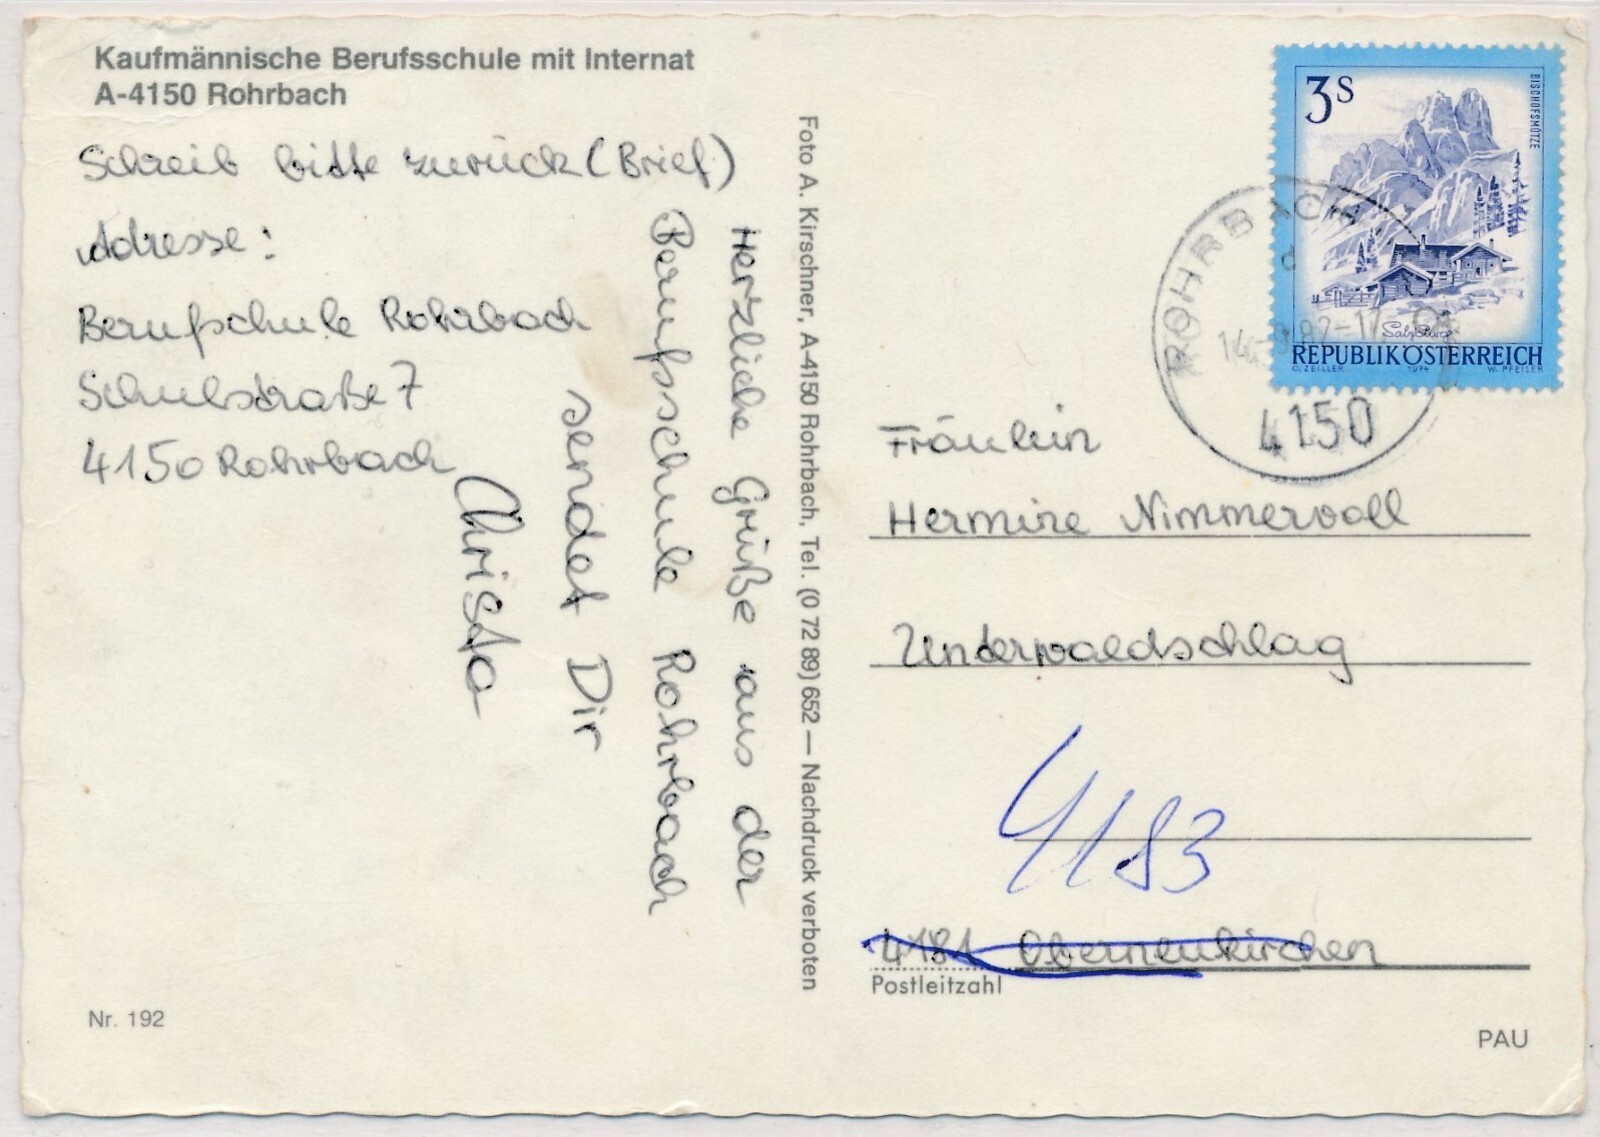 Kaufmännische Berufsschule mit Internat
A-4150 Rohrbach
Schreib bitte zurück (Brief)
Adresse:
Berufschule Rohrbach
Schulstraße 7
4150 Rohrbach
Herzliche Grüße aus der
Berufsschule Rohrbach
sendet Dir
Christa
Nr. 192
Foto A. Kirschner, A-4150 Rohrbach, Tel. (0 72 89) 652 — Nachdruck verboten
3 S
BISCHOFSMÜTZE
Salzburg
REPUBLIK ÖSTERREICH
O. ZEILLER 1974 W. PFEILER
ROHRBACH
4150
Fräulein
Hermine Nimmervoll
Unterwaldschlag
4183
4181 Oberneukirchen
Postleitzahl
PAU